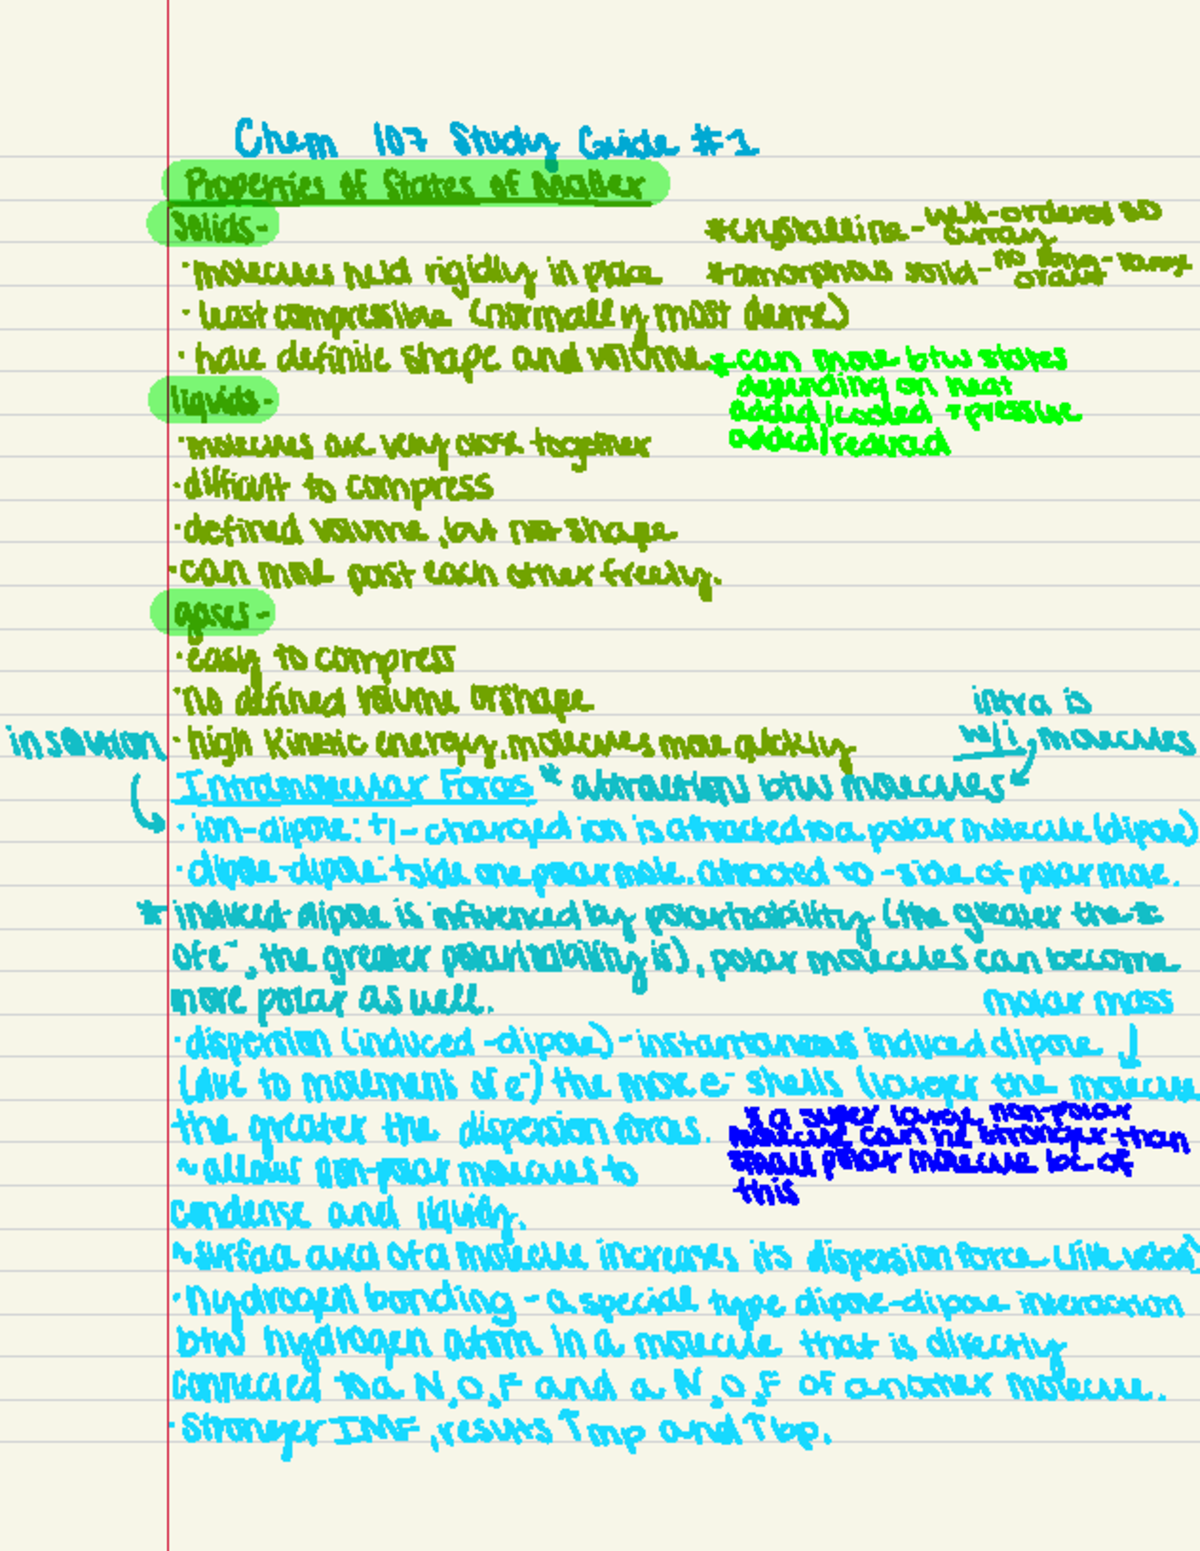 Chem 107 Study Guide #1
Properties of States of Matter
Solids-
*crystalline - well-ordered 3D array
· molecules held rigidly in place
*amorphous solid - no long-range order
· least compressible (normally most dense)
· have definite shape and volume
*can move btw states
depending on heat
added/cooled + pressure
added/reduced
liquids-
· molecules are very close together
· difficult to compress
· defined volume, but no shape
· can move past each other freely.
gases-
· easy to compress
· no defined volume or shape
intra is
w/i molecules
in solution
· high kinetic energy, molecules move quickly
Intramolecular Forces * attractions btw molecules
· ion-dipole: +/- charged ion is attracted to a polar molecule (dipole)
· dipole-dipole: + side one polar mole. attracted to - side of polar mole.
* induced-dipole is influenced by polarizability (the greater the #
of e⁻, the greater polarizability is), polar molecules can become
more polar as well.
molar mass ↓
· dispersion (induced-dipole) - instantaneous induced dipole
(due to movement of e⁻) the more e⁻ shells (larger the molecule
the greater the dispersion forces.
*a super large non-polar
molecule can be stronger than
small polar molecule bc of
this
~ allows non-polar molecules to
condense and liquify.
~ surface area of a molecule increases its dispersion force (like
· hydrogen bonding - a special type dipole-dipole interaction
btw hydrogen atom in a molecule that is directly
connected to a N,O,F and a N,O,F of another molecule.
· Stronger IMF, results ↑mp and ↑bp.